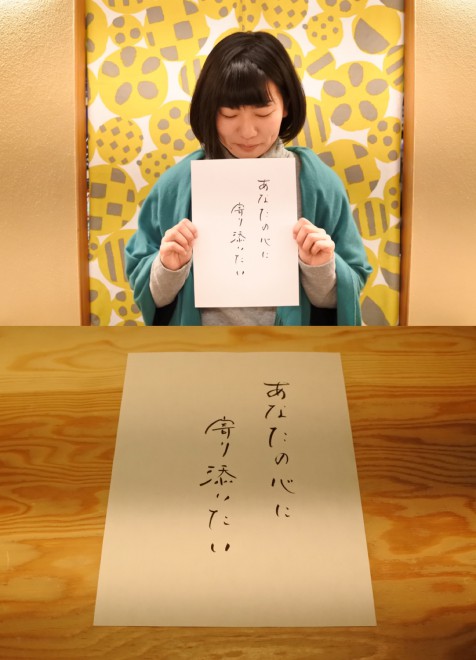 あなたの心に
寄り添いたい
あなたの心に
寄り添いたい